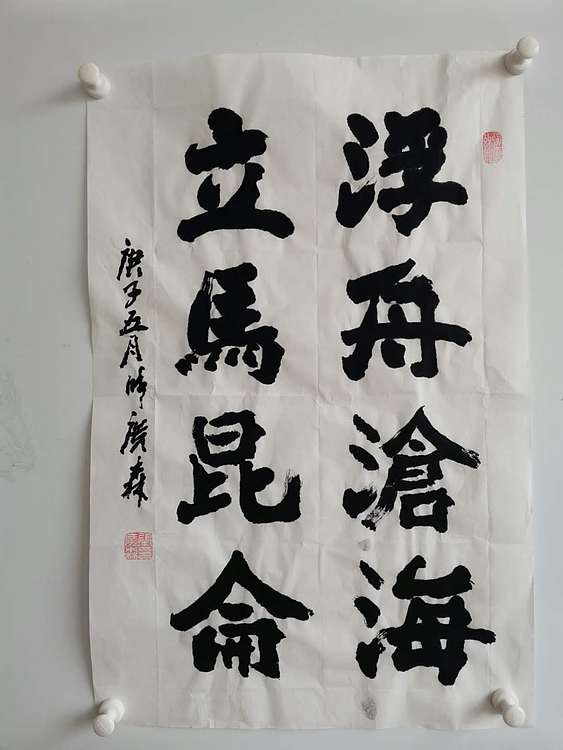 浮舟滄海
立馬昆侖
庚子五月時廣森